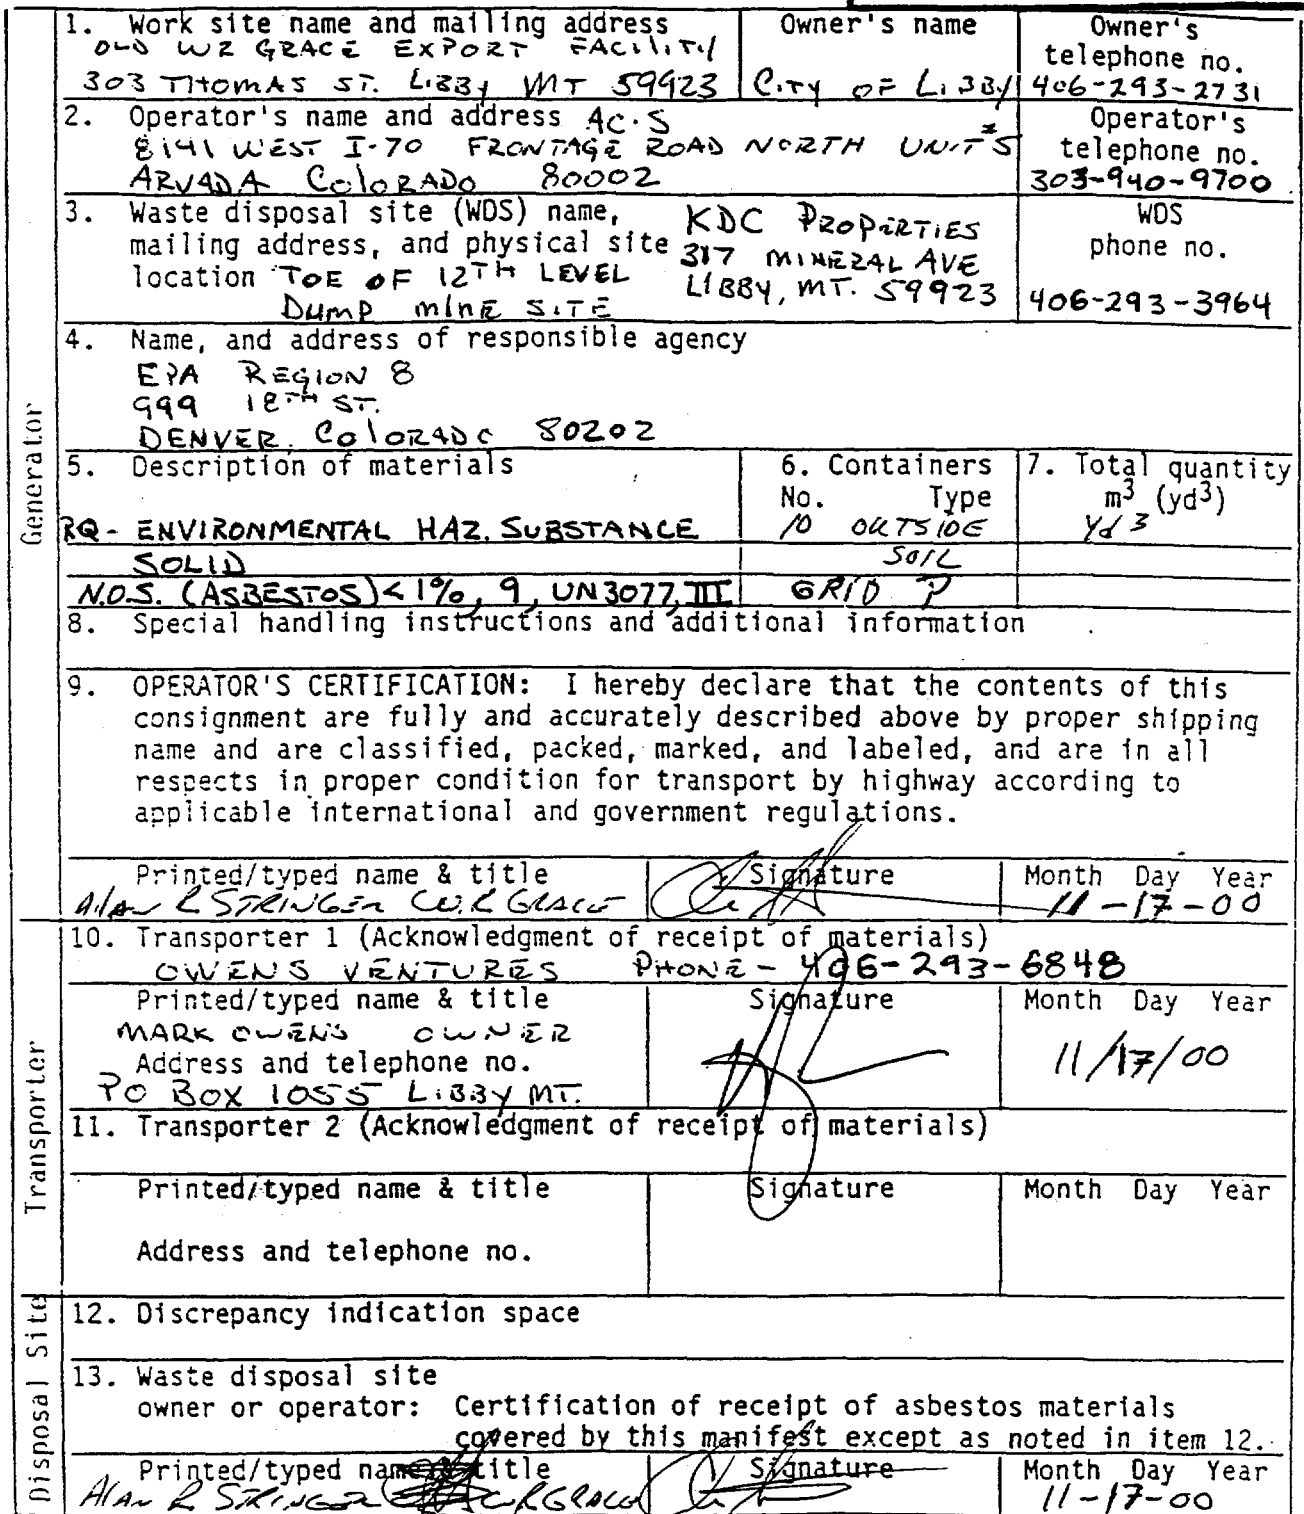 1. Work site name and mailing address
OLD WR GRACE EXPORT FACILITY
303 THOMAS ST. LIBBY MT 59923
Owner's name
CITY OF LIBBY
Owner's
telephone no.
406-293-2731
2. Operator's name and address AC·S
8141 WEST I-70 FRONTAGE ROAD NORTH UNIT #5
ARVADA COLORADO 80002
Operator's
telephone no.
303-940-9700
3. Waste disposal site (WDS) name,
mailing address, and physical site
location TOE OF 12TH LEVEL
DUMP MINE SITE
KDC PROPERTIES
317 MINERAL AVE
LIBBY, MT. 59923
WDS
phone no.
406-293-3964
4. Name, and address of responsible agency
EPA REGION 8
999 18TH ST.
DENVER, COLORADO 80202
Generator
5. Description of materials
6. Containers
No. Type
7. Total quantity
m3 (yd3)
RQ - ENVIRONMENTAL HAZ. SUBSTANCE
10 OUTSIDE
Yd 3
SOLID
SOIL
N.O.S. (ASBESTOS) < 1%, 9, UN3077, III
GRID P
8. Special handling instructions and additional information
9. OPERATOR'S CERTIFICATION: I hereby declare that the contents of this
consignment are fully and accurately described above by proper shipping
name and are classified, packed, marked, and labeled, and are in all
respects in proper condition for transport by highway according to
applicable international and government regulations.
Printed/typed name & title
Alan R STRINGER W.R GRACE
Signature
Month Day Year
11-17-00
10. Transporter 1 (Acknowledgment of receipt of materials)
OWENS VENTURES PHONE - 406-293-6848
Printed/typed name & title
MARK OWENS OWNER
Address and telephone no.
PO BOX 1055 LIBBY MT.
Signature
Month Day Year
11/17/00
Transporter
11. Transporter 2 (Acknowledgment of receipt of materials)
Printed/typed name & title
Signature
Month Day Year
Address and telephone no.
Disposal Site
12. Discrepancy indication space
13. Waste disposal site
owner or operator: Certification of receipt of asbestos materials
covered by this manifest except as noted in item 12.
Printed/typed name & title
Alan R STRINGER WR GRACE
Signature
Month Day Year
11-17-00